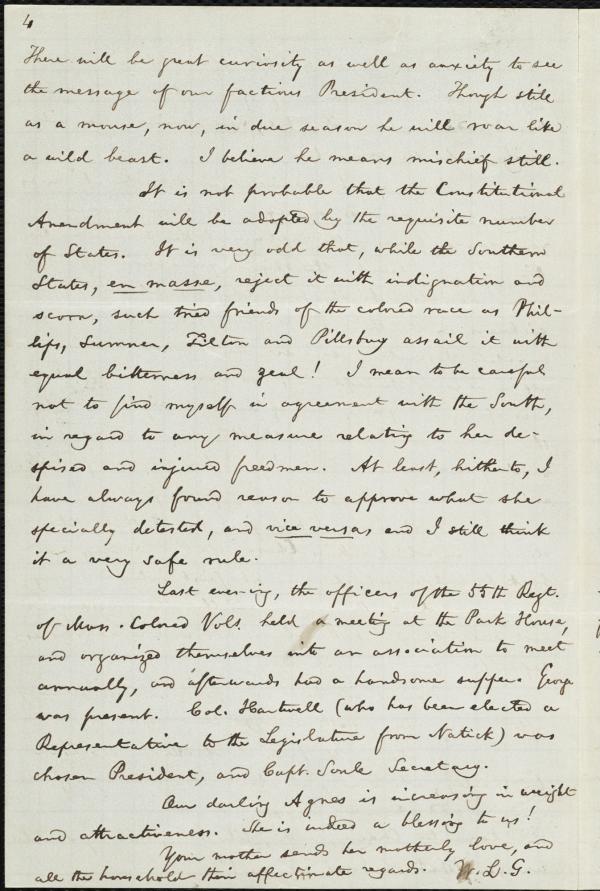 4
There will be great curiosity as well as anxiety to see
the message of our factious President. Though still
as a mouse, now, in due season he will roar like
a wild beast. I believe he means mischief still.
It is not probable that the Constitutional
Amendment will be adopted by the requisite number
of States. It is very odd that, while the Southern
States, en masse, reject it with indignation and
scorn, such tried friends of the colored race as Phil-
lips, Sumner, Tilton and Pillsbury assail it with
equal bitterness and zeal! I mean to be careful
not to find myself in agreement with the South,
in regard to any measure relating to her de-
spised and injured freedmen. At least, hitherto, I
have always found reason to approve what she
specially detested, and vice versa; and I still think
it a very safe rule.
Last evening, the officers of the 55th Regt.
of Mass. Colored Vols. held a meeting at the Park House,
and organized themselves into an association to meet
annually, and afterwards had a handsome supper. George
was present. Col. Hartwell (who has been elected a
Representative to the Legislature from Natick) was
chosen President, and Capt. Soule Secretary.
Our darling Agnes is increasing in weight
and attractiveness. She is indeed a blessing to us!
Your mother sends her motherly love, and
all the household their affectionate regards. W. L. G.